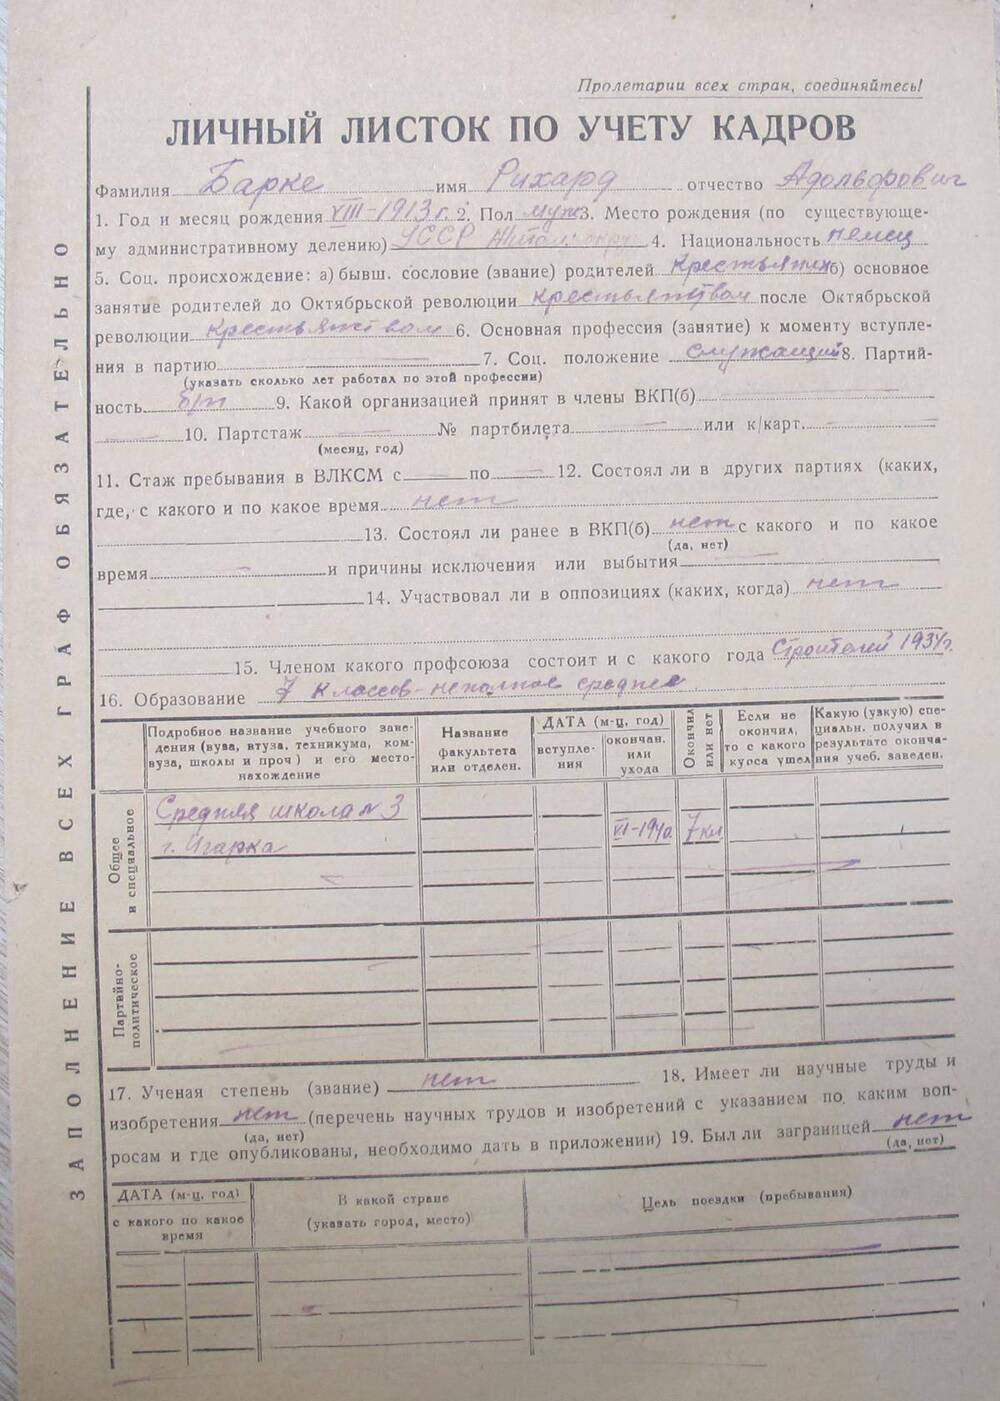 Пролетарии всех стран, соединяйтесь!
ЛИЧНЫЙ ЛИСТОК ПО УЧЕТУ КАДРОВ
Фамилия Барке имя Рихард отчество Адольфович
1. Год и месяц рождения VIII-1913 г. 2. Пол муж 3. Место рождения (по существующе-
му административному делению) УССР 4. Национальность немец
5. Соц. происхождение: а) бывш. сословие (звание) родителей крестьяне б) основное
занятие родителей до Октябрьской революции крестьянством после Октябрьской
революции крестьянством 6. Основная профессия (занятие) к моменту вступле-
ния в партию 7. Соц. положение служащий 8. Партий-
(указать сколько лет работал по этой профессии)
ность б/п 9. Какой организацией принят в члены ВКП(б)
10. Партстаж № партбилета или к/карт.
(месяц, год)
11. Стаж пребывания в ВЛКСМ с по 12. Состоял ли в других партиях (каких,
где, с какого и по какое время нет
13. Состоял ли ранее в ВКП(б) нет с какого и по какое
(да, нет)
время и причины исключения или выбытия
14. Участвовал ли в оппозициях (каких, когда) нет
15. Членом какого профсоюза состоит и с какого года Строителей 1934г.
16. Образование 7 классов-неполное среднее
Подробное название учебного заве-
дения (вуза, втуза, техникума, ком-
вуза, школы и проч) и его место-
нахождение
Название
факультета
или отделен.
ДАТА (м-ц, год)
вступле-
ния
окончан.
или
ухода
Окончил
или нет
Если не
окончил,
то с какого
курса ушел
Какую (узкую) спе-
циальн. получил в
результате оконча-
ния учеб. заведен.
Общее
и специальное
Средняя школа № 3
г. Игарка
VI-1940
7 кл
Партийно-
политическое
17. Ученая степень (звание) нет 18. Имеет ли научные труды и
изобретения нет (перечень научных трудов и изобретений с указанием по каким воп-
(да, нет)
росам и где опубликованы, необходимо дать в приложении) 19. Был ли заграницей нет
(да, нет)
ДАТА (м-ц, год)
с какого по какое
время
В какой стране
(указать город, место)
Цель поездки (пребывания)
ЗАПОЛНЕНИЕ ВСЕХ ГРАФ ОБЯЗАТЕЛЬНО